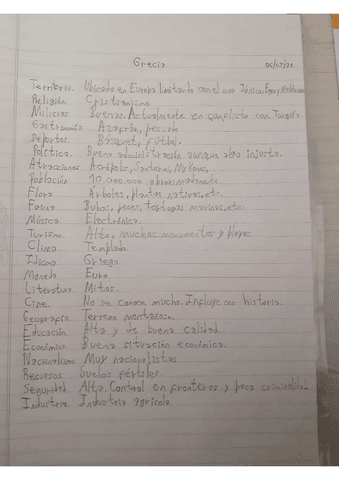 Grecia
Territorio. Ubicado en Europa limitando con el mar Jónico, Egeo y Mediterraneo
Religión Cristianismo
Milicias. Buenas. Actualmente en conflicto con Turquía.
Gastronomía Azafrán, pescado
Deportes. Básquet, fútbol.
Política. Buena administración aunque algo injusta.
Atracciones Acrópolis, Santorini, Mykonos,
Población 10.000.000 aproximadamente.
Flora Árboles, plantas nativas, etc
Fauna Buhos, peces, tortugas marinas, etc
Música Electrónica.
Turismo Alto, muchos monumentos y playas
Clima Templado
Idioma Griego.
Moneda Euro.
Literatura Mitos.
Cine. No se conoce mucho. Influye con historia.
Geografía. Terreno montañoso.
Educación Alta y de buena calidad.
Economía Buena situación económica.
Nacionalismo Muy nacionalistas.
Recursos Suelos fértiles.
Seguridad. Alta. Control en fronteras y poca
Industria Industria agrícola.